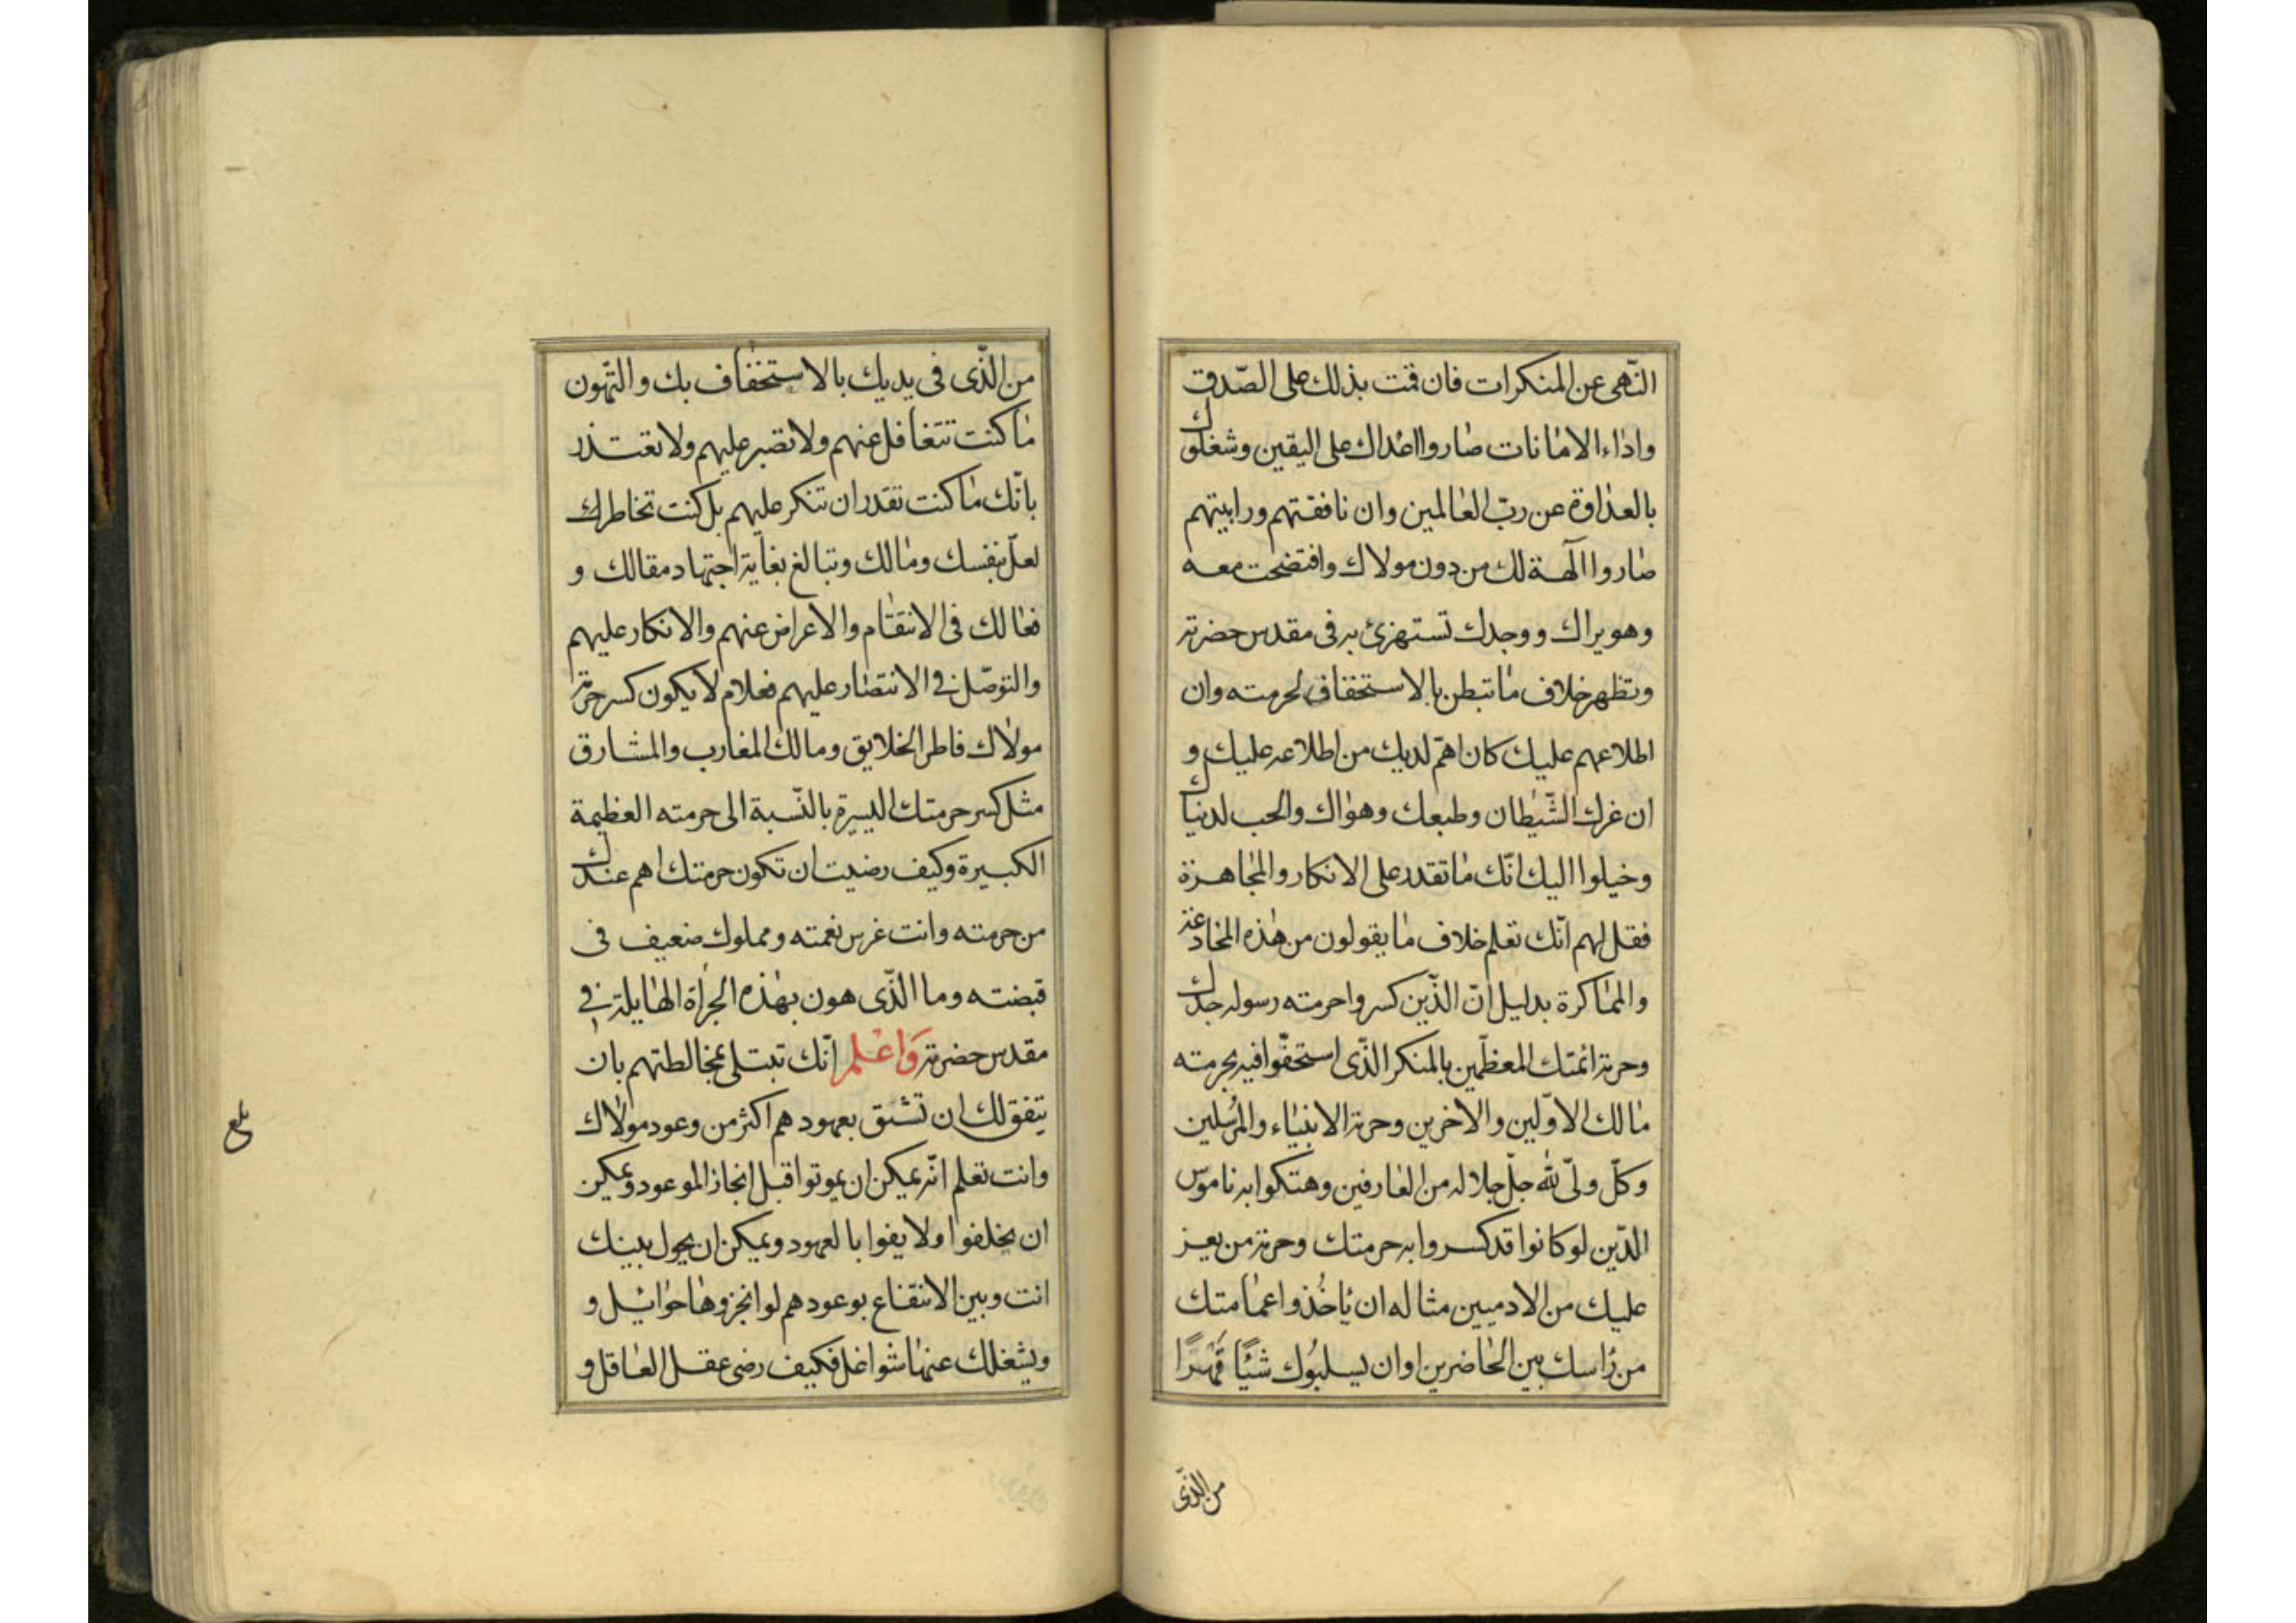 النّهى عن المنكرات فان قمت بذلك على الصّدق
واداء الامانات صاروا اعداك على اليقين وشغلوك
بالعداوة عن ربّ العالمين وان نافقتهم ورابيتهم
صاروا آلهة لك من دون مولاك وافتضحت معه
وهو يراك ووجدك تستهزئ به فى مقدس حضرته
وتظهر خلاف ما تبطن بالاستخفاف لحرمته وان
اطلاعهم عليك كان اهمّ لديك من اطلاعه عليك و
ان غرك الشّيطان وطبعك وهواك والحب لدنياك
وخيلوا اليك انّك ما تقدر على الانكار والمجاهرة
فقل لهم انّك تعلم خلاف ما يقولون من هذه المخادعة
والمماكرة بدليل انّ الذّين كسروا حرمته رسوله جدك
وحرمة ائمتك المعظّمين بالمنكر الذّى استخفّوا فيه بحرمته
مالك الاوّلين والآخرين وحرمة الانبياء والمرسلين
وكلّ ولىّ لله جلّ جلاله من العارفين وهتكوا به ناموس
الدّين لو كانوا قد كسروا به حرمتك وحرمة من يعز
عليك من الادميين مثاله ان ياخذوا عمامتك
من راسك بين الحاضرين او ان يسلبوك شيئًا قهرًا
من الذّى
من الذّى فى يديك بالاستخفاف بك والتّهون
ما كنت تتغافل عنهم ولا تصبر عليهم ولا تعتذر
بانّك ما كنت تقدر ان تنكر عليهم بل كنت تخاطر
لعلّ بنفسك ومالك وتبالغ بغاية اجتهاد مقالك و
فعالك فى الانتقام والاعراض عنهم والانكار عليهم
والتوصّل فى الانتصار عليهم فعلام لا يكون كسر حرمة
مولاك فاطر الخلايق ومالك المغارب والمشارق
مثل كسر حرمتك اليسيرة بالنّسبة الى حرمته العظيمة
الكبيرة وكيف رضيت ان تكون حرمتك اهم عندك
من حرمته وانت غرس نعمته ومملوك ضعيف فى
قبضته وما الذّى هون بهذه الجراة الهايلة فى
مقدس حضرته وَاعْلم انّك تبتلى بمخالطتهم بان
يتفق لك ان تثق بعهودهم اكثر من وعود مولاك
وانت تعلم انّه يمكن ان يموتوا قبل انجاز الموعود ويمكن
ان يخلفوا ولا يفوا بالعهود ويمكن ان يحول بينك
انت وبين الانتفاع بوعودهم لو انجزوها حوائل و
ويشغلك عنها شواغل فكيف رضى عقل العاقل و
بلغ